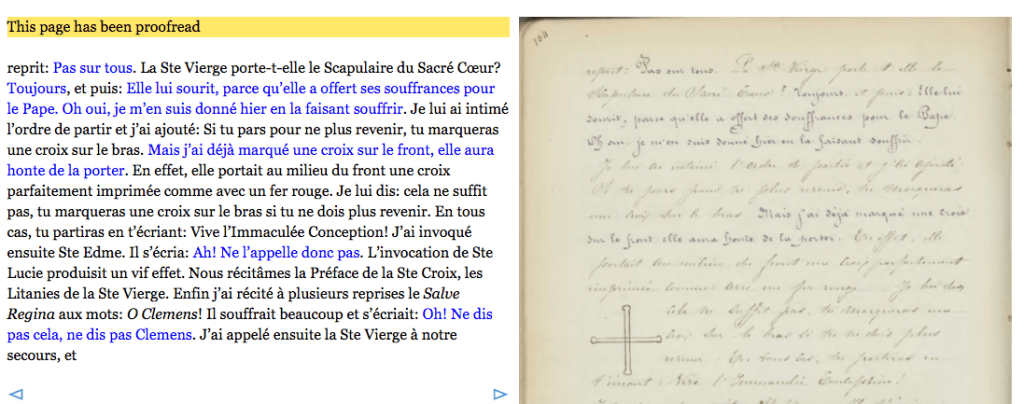 This page has been proofread
reprit: Pas sur tous. La Ste Vierge porte-t-elle le Scapulaire du Sacré Cœur?
Toujours, et puis: Elle lui sourit, parce qu’elle a offert ses souffrances pour
le Pape. Oh oui, je m’en suis donné hier en la faisant souffrir. Je lui ai intimé
l’ordre de partir et j’ai ajouté: Si tu pars pour ne plus revenir, tu marqueras
une croix sur le bras. Mais j’ai déjà marqué une croix sur le front, elle aura
honte de la porter. En effet, elle portait au milieu du front une croix
parfaitement imprimée comme avec un fer rouge. Je lui dis: cela ne suffit
pas, tu marqueras une croix sur le bras si tu ne dois plus revenir. En tous
cas, tu partiras en t’écriant: Vive l’Immaculée Conception! J’ai invoqué
ensuite Ste Edme. Il s’écria: Ah! Ne l’appelle donc pas. L’invocation de Ste
Lucie produisit un vif effet. Nous récitâmes la Préface de la Ste Croix, les
Litanies de la Ste Vierge. Enfin j’ai récité à plusieurs reprises le Salve
Regina aux mots: O Clemens! Il souffrait beaucoup et s’écriait: Oh! Ne dis
pas cela, ne dis pas Clemens. J’ai appelé ensuite la Ste Vierge à notre
secours, et
104
reprit: Pas sur tous. La Ste Vierge porte t-elle le
Scapulaire du Sacré Cœur? Toujours, et puis: Elle lui
sourit, parce qu'elle a offert ses souffrances pour le Pape.
Oh oui, je m'en suis donné hier en la faisant souffrir.
Je lui ai intimé l'ordre de partir et j'ai ajouté:
Si tu pars pour ne plus revenir, tu marqueras
une croix sur le bras. Mais j'ai déjà marqué une croix
sur le front, elle aura honte de la porter. En effet, elle
portait au milieu du front une croix parfaitement
imprimée comme avec un fer rouge. Je lui dis
cela ne suffit pas, tu marqueras une
croix sur le bras si tu ne dois plus
revenir. En tous cas, tu partiras en
t'écriant: Vive l'Immaculée Conception!